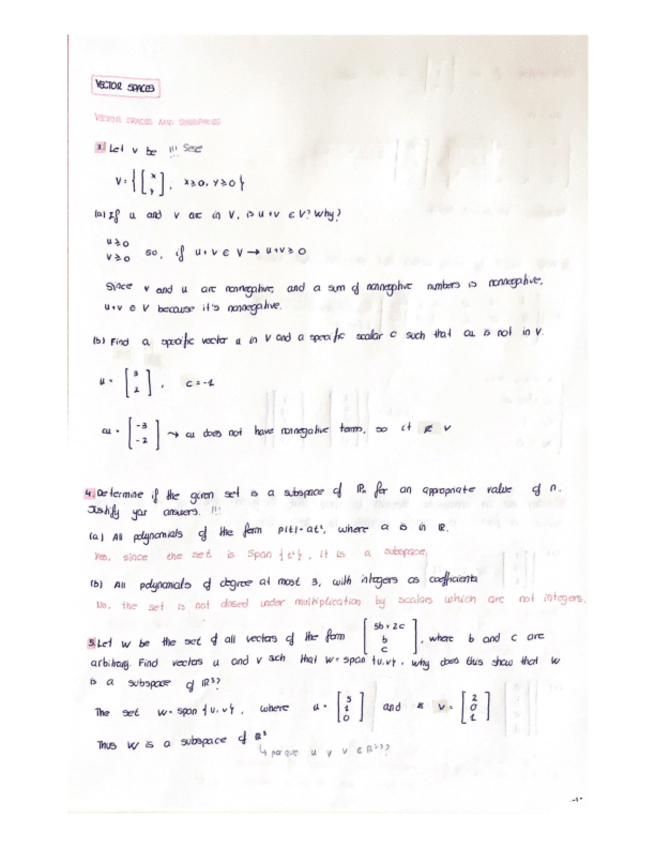 VECTOR SPACES
VECTOR SPACES AND SUBSPACES
1. Let V be !!! See
V = { [ x y ] , x≥0, y≥0 }
(a) If u and v are in V, is u+v ∈ V? Why?
u≥0
v≥0 so, if u+v ∈ V → u+v ≥ 0
Since v and u are nonnegative, and a sum of nonnegative numbers is nonnegative,
u+v ∈ V because it's nonnegative.
(b) Find a specific vector u in V and a specific scalar c such that cu is not in V.
u = [ 3 2 ] , c = -1
cu = [ -3 -2 ] → cu does not have nonnegative terms, so it ∉ V
4. Determine if the given set is a subspace of Pn for an appropriate value of n.
Justify your answers. !!!
(a) All polynomials of the form p(t) = at², where a is in R.
Yes, since the set is Span {t²}, it is a subspace,
(b) All polynomials of degree at most 3, with integers as coefficients
No, the set is not closed under multiplication by scalars which are not integers.
5. Let W be the set of all vectors of the form [ 5b + 2c b c ] , where b and c are
arbitrary. Find vectors u and v such that W = span {u,v}. Why does this show that W
is a subspace of R³?
The set W = span {u,v}, where u = [ 5 1 0 ] and v = [ 2 0 1 ]
Thus W is a subspace of R³
↳ porque u y v ∈ R³??